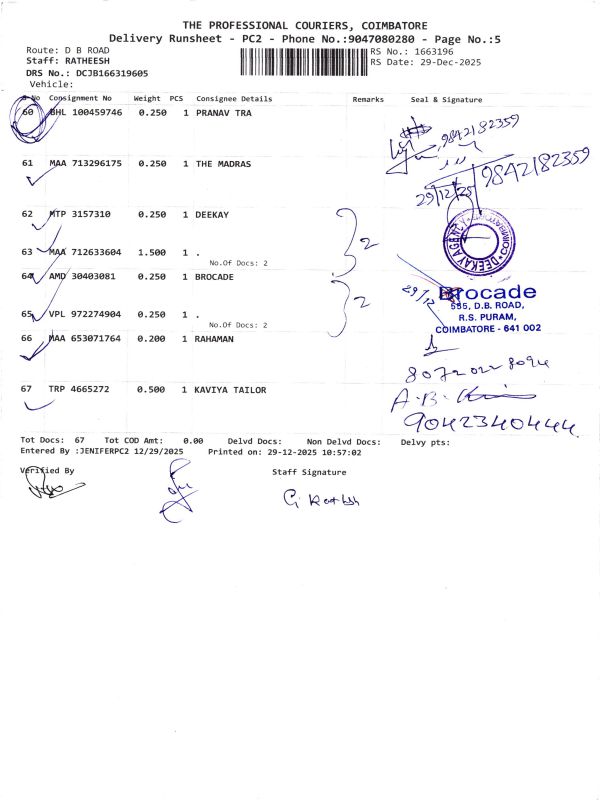 THE PROFESSIONAL COURIERS, COIMBATORE
Delivery Runsheet - PC2 - Phone No.:9047080280 - Page No.:5
Route: D B ROAD
RS No.: 1663196
Staff: RATHEESH
RS Date: 29-Dec-2025
DRS No.: DCJB166319605
Vehicle:
S No Consignment No Weight PCS Consignee Details Remarks Seal & Signature
60 BHL 100459746 0.250 1 PRANAV TRA
9842182359
61 MAA 713296175 0.250 1 THE MADRAS
9842182359
29/12/25
62 MTP 3157310 0.250 1 DEEKAY
2
DEEKAY AGENCY COIMBATORE
63 MAA 712633604 1.500 1 .
No.Of Docs: 2
64 AMD 30403081 0.250 1 BROCADE
2
29/12
Brocade
555, D.B. ROAD,
R.S. PURAM,
COIMBATORE - 641 002
65 VPL 972274904 0.250 1 .
No.Of Docs: 2
66 MAA 653071764 0.200 1 RAHAMAN
8072022 8094
67 TRP 4665272 0.500 1 KAVIYA TAILOR
A.B.
9042340444
Tot Docs: 67 Tot COD Amt: 0.00 Delvd Docs: Non Delvd Docs: Delvy pts:
Entered By :JENIFERPC2 12/29/2025 Printed on: 29-12-2025 10:57:02
Verified By Staff Signature